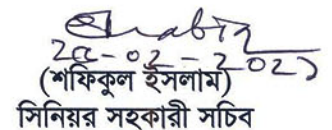 ২৫-০২-২০২১
(শফিকুল ইসলাম)
সিনিয়র সহকারী সচিব